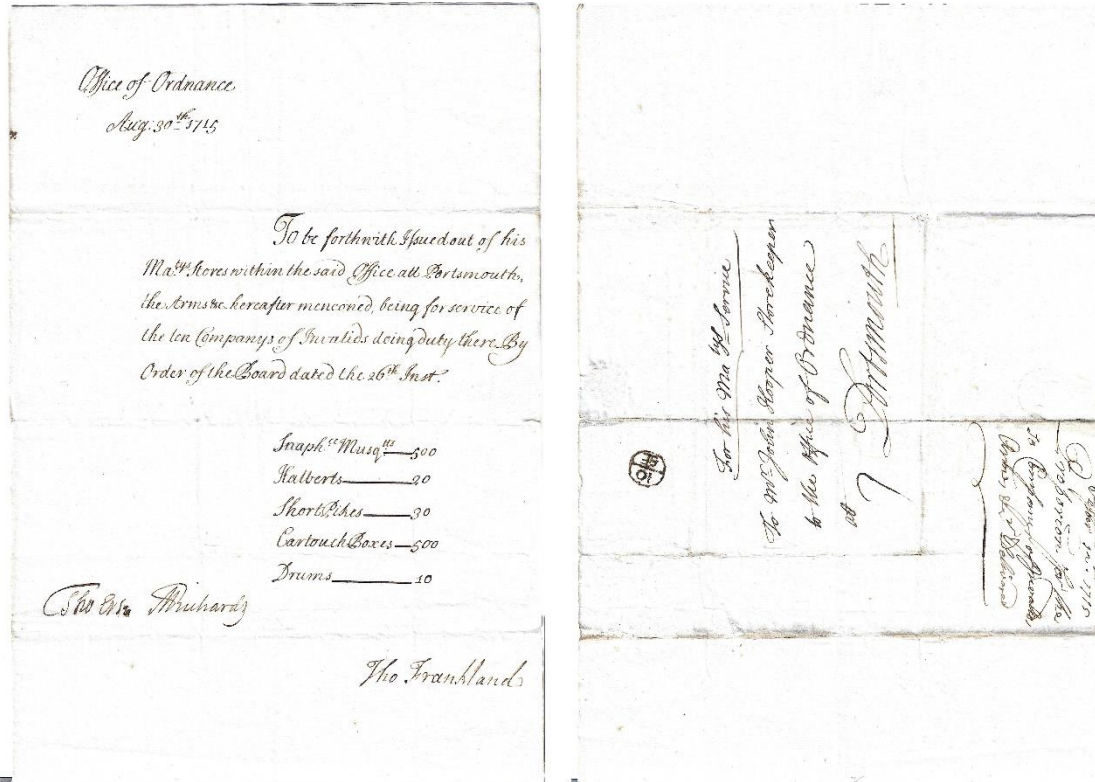 Office of Ordnance
Aug: 30th 1715
To be forthwith Issued out of his
Ma:tys stores within the said Office att Portsmouth,
the Arms &c. hereafter menconed, being for service of
the ten Companys of Invalids doing duty there. By
Order of the Board dated the 26th Inst.
Snaph:ce Musqtts 500
Halberts 30
Short Pikes 30
Cartouch Boxes 500
Drums 10
Tho Ers: Richards
Tho Frankland
For his Matys Service
To Mr. John Hooper Storekeeper
to the Office of Ordnance
at
Portsmouth
1715
for the
10 Companys of